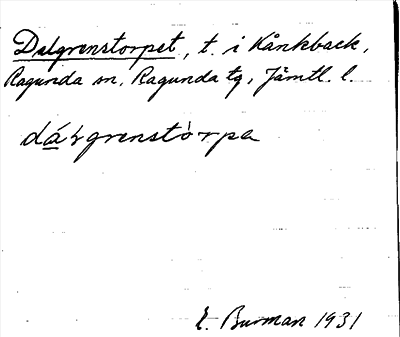 Dalgrenstorpet, t. i Kånkback,
Ragunda sn, Ragunda tg, Jämtl. l.
dáɽgrenstòrpa
E. Burman 1931